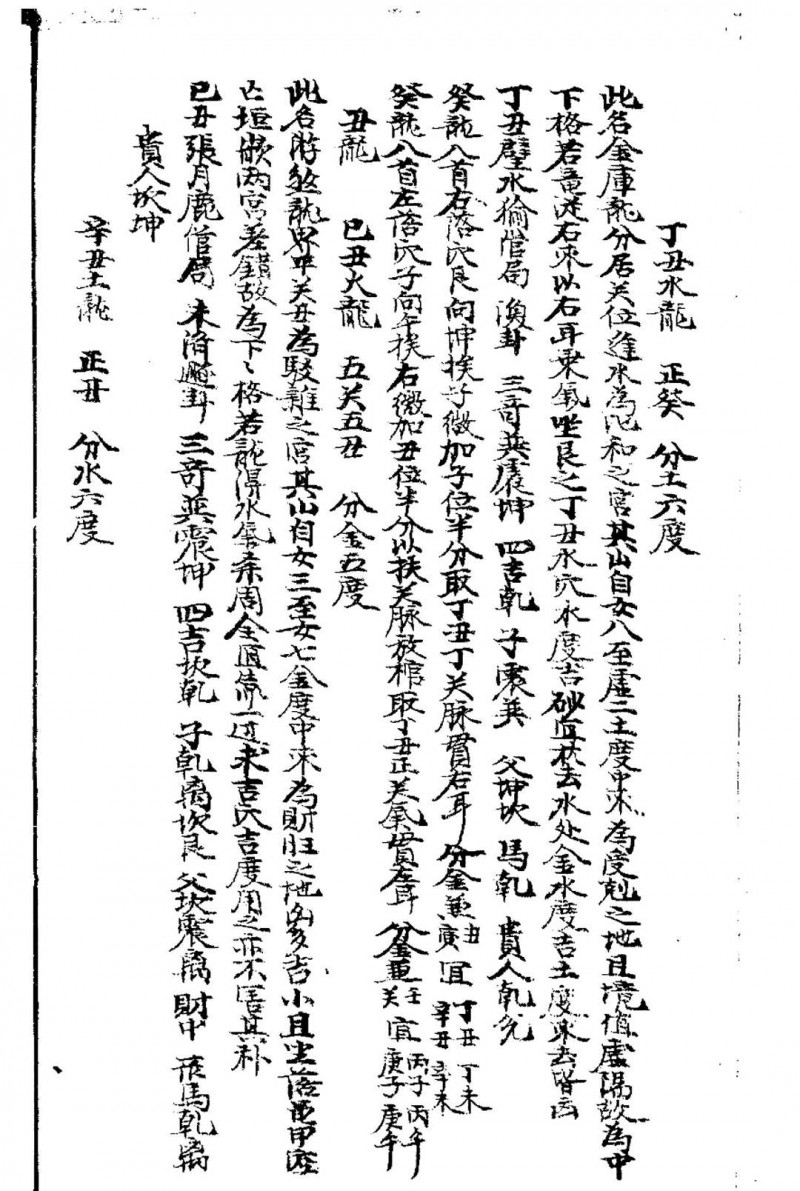 丁丑水龍 正癸 分土六度
此名金庫龍分居关位逢水為比和之宮其山自女八至虛二土度中來為受剋之地且境值虛陽故為中
下格若龍從右來以右耳乘氣坐艮之丁丑水穴水度吉砂宜杭去水处金水度吉土度來去皆凶
丁丑壁水㺄信局 渙卦 三奇巽震坤 四吉乾 子震巽 父坤坎 馬乾 貴人乾兌
癸龍入首右落穴艮向坤挨子微加子位半分取丁丑丁关脉貫右耳 分金兼丑寅 宜丁丑丁未辛丑辛未
癸龍入首左落穴子向午挨右微加丑位半分以扶关脉放棺取丁丑正关氣貫左耳 分金兼壬关 宜丙子丙午庚子庚午
丑龍 己丑火龍 五关五丑 分金五度
此名游煞龍界中关丑為駁雜之宮其山自女三至女七金度中來為財旺之地凶多吉小且坐落
亡垣嵌两宮差錯故為下下格若龍得水氣 周全 宜 一边來吉穴吉度用之亦不
己丑張月鹿 局 未 卦 三奇巽震坤 四吉坎乾 子乾離坎艮 父坎震離 財中 馬乾離
貴人坎坤
辛丑土龍 正丑 分水六度